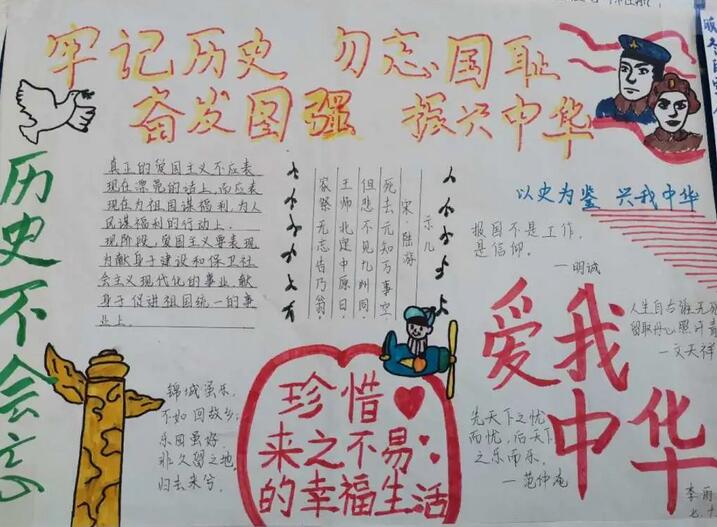 牢记历史 勿忘国耻
奋发图强 振兴中华
历史不会忘
真正的爱国主义不应表
现在漂亮的话上,而应表
现在为祖国谋福利,为人
民谋福利的行动上。
现阶段,爱国主义要表现
为献身于建设和保卫社
会主义现代化的事业,献
身于促进祖国统一的事
业上。
示儿
宋 陆游
死去元知万事空
但悲不见九州同
王师北定中原日,
家祭无忘告乃翁。
以史为鉴 兴我中华
报国不是工作,
是信仰。
—明诚
人生自古谁无死
留取丹心照汗青
—文天祥
爱我
中华
先天下之忧
而忧,后天下
之乐而乐。
—范仲淹
锦城虽乐,
不如回故乡;
乐园虽好,
非久留之地,
归去来兮。
珍惜
来之不易
的幸福生活
李雨
七.十